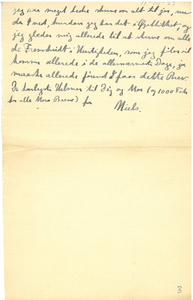 jeg var meget bedre skrive om alt til jer, nu
du ved, hvordan jeg har det i Øjeblikket, og
jeg glæder mig allerede til at skrive om alle
de Fremskridt i Hurtigheden, som jeg føler vil
komme allerede i de allernærmeste Dage, ja
maaske allerede førend I faar dette Brev.
De kærligste Hilsner til Dig og Mor (og 1000 Tak
for alle Mors Breve) fra
Niels.
3